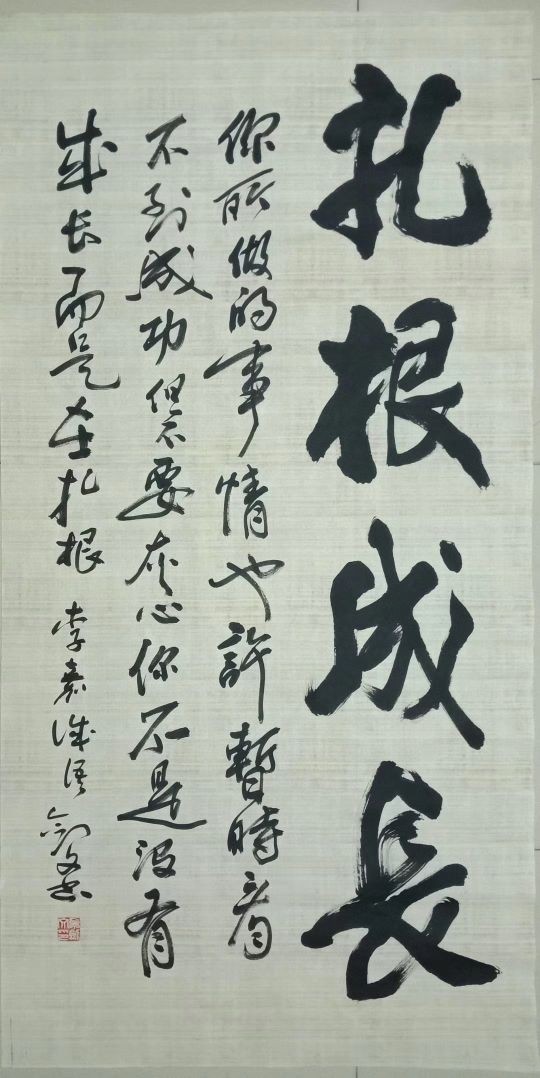 扎根成長
你所做的事情也許暫時看
不到成功但不要灰心你不是沒有
成长而是在扎根 李嘉诚语 剑文书